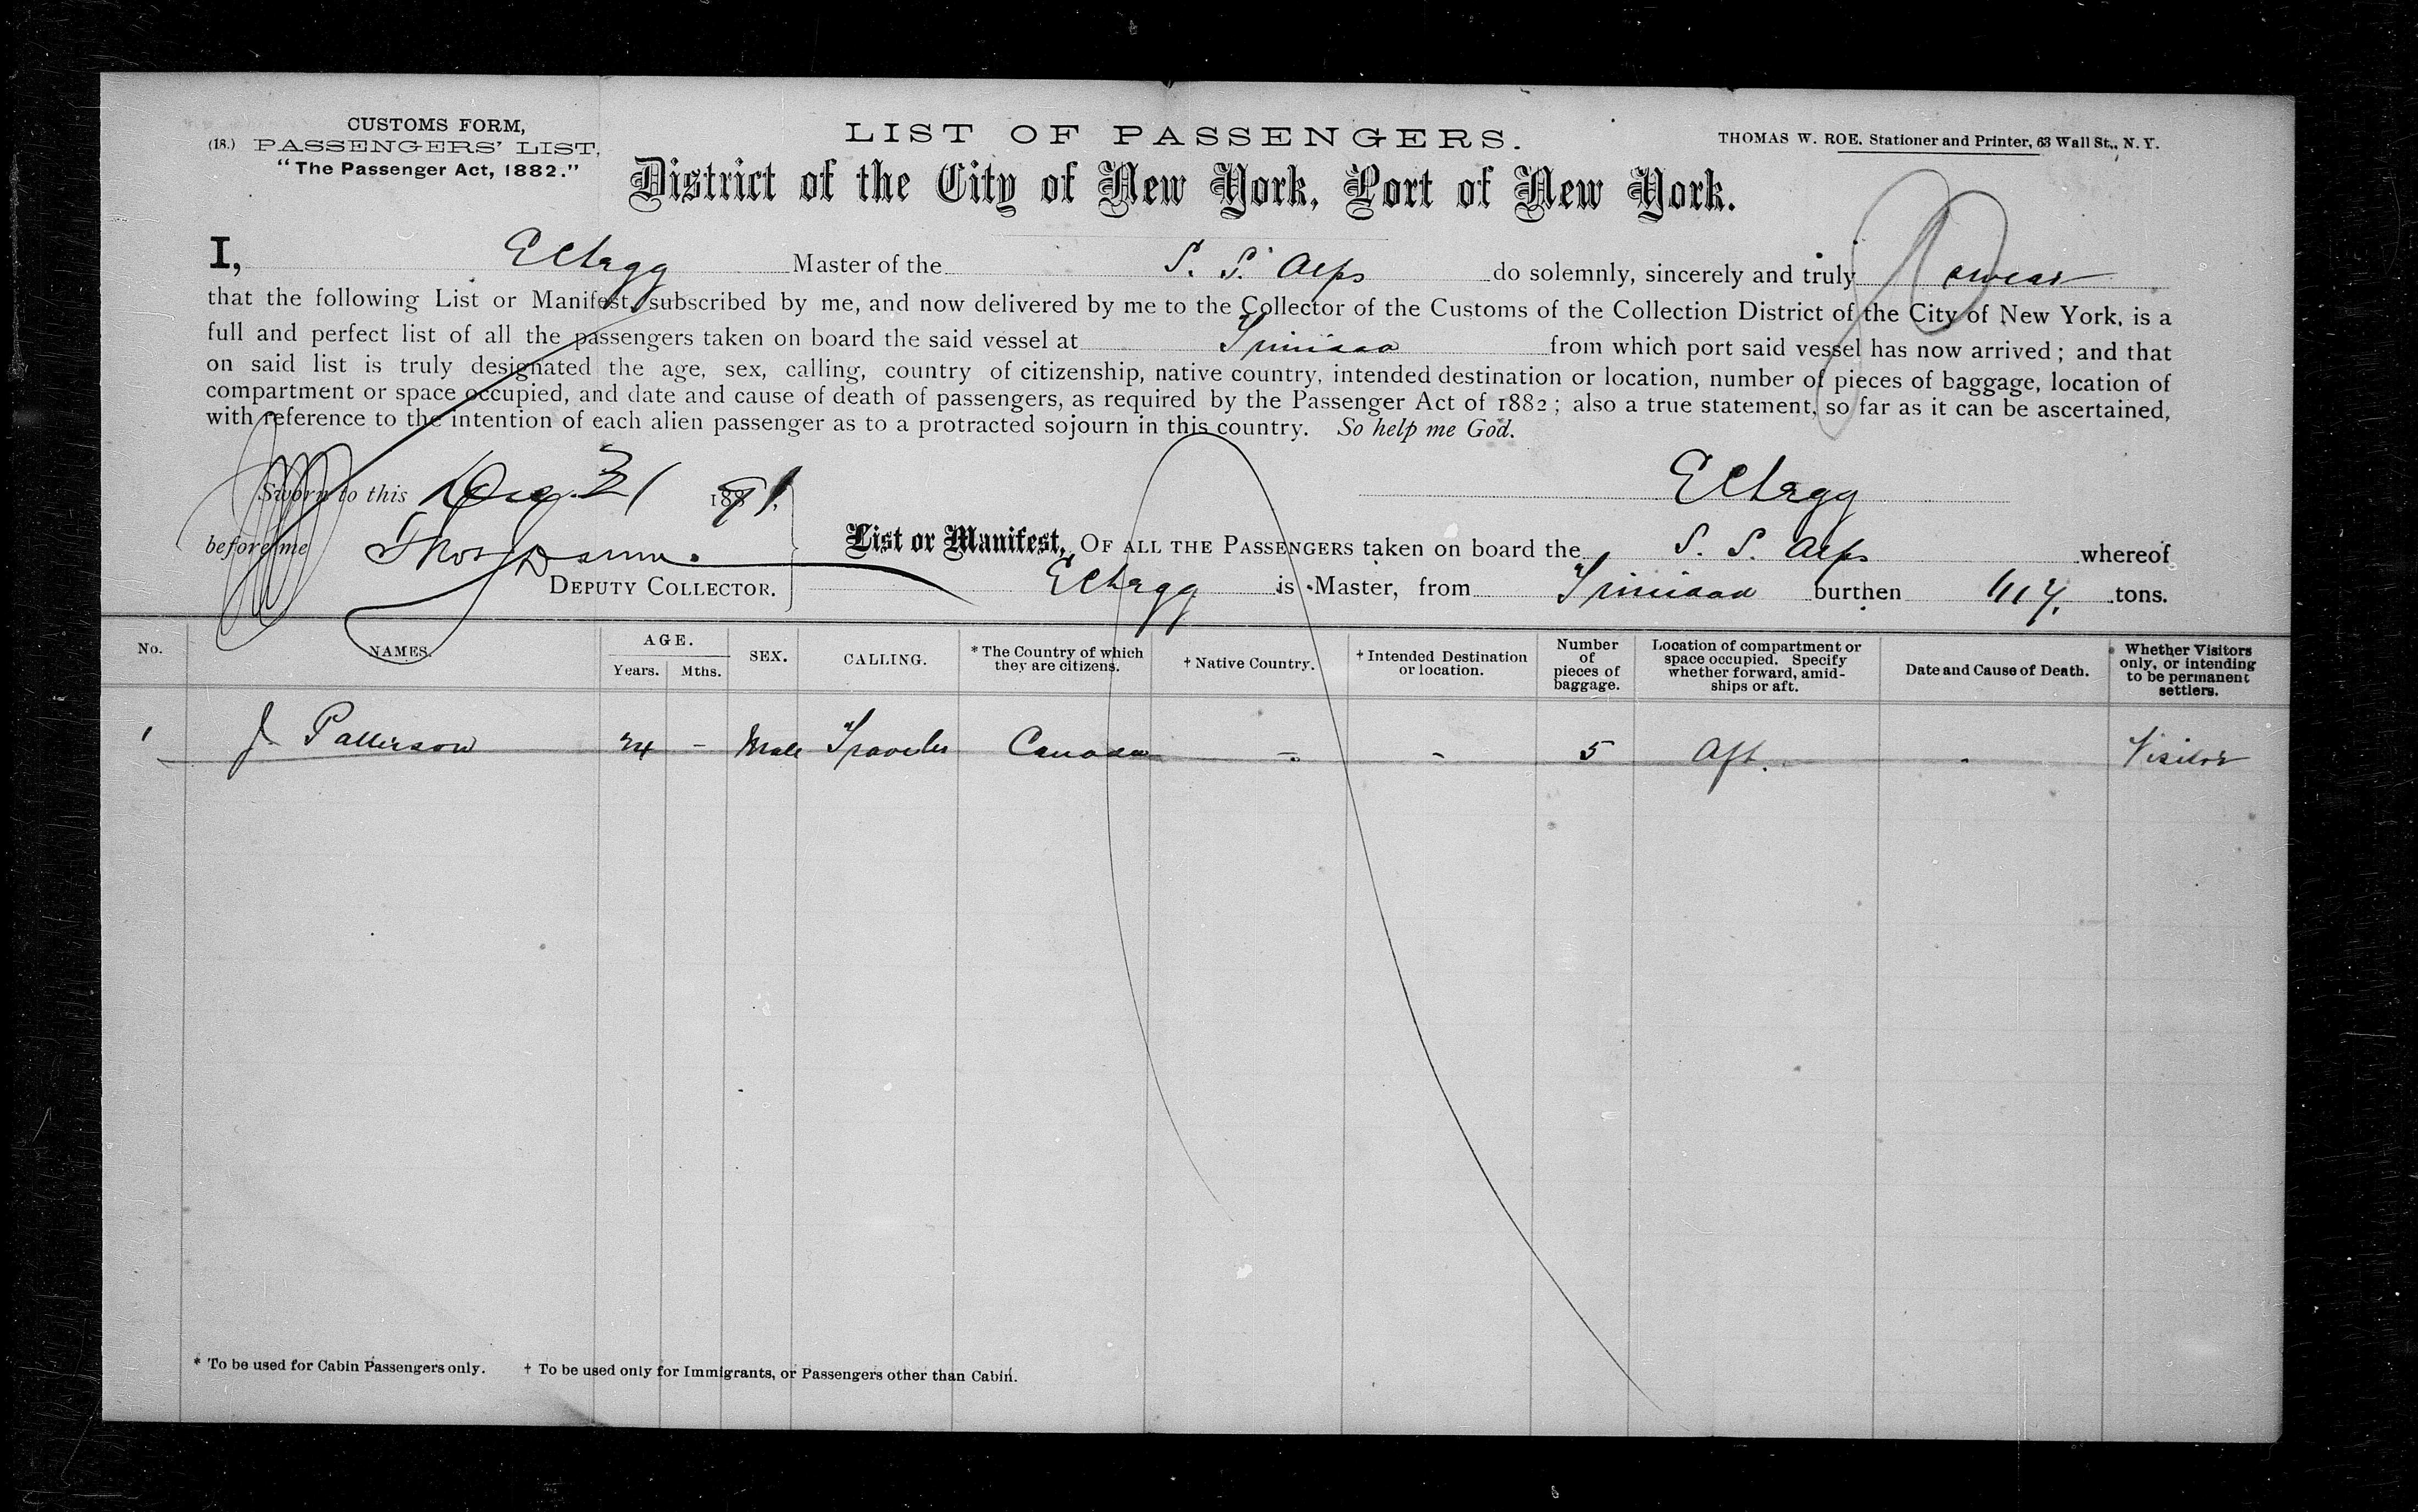 CUSTOMS FORM,
(18.) PASSENGERS' LIST,
"The Passenger Act, 1882."
LIST OF PASSENGERS.
THOMAS W. ROE. Stationer and Printer, 63 Wall St., N. Y.
District of the City of New York, Port of New York.
I, Master of the S. S. Alps do solemnly, sincerely and truly swear
that the following List or Manifest, subscribed by me, and now delivered by me to the Collector of the Customs of the Collection District of the City of New York, is a
full and perfect list of all the passengers taken on board the said vessel at Trinidad from which port said vessel has now arrived; and that
on said list is truly designated the age, sex, calling, country of citizenship, native country, intended destination or location, number of pieces of baggage, location of
compartment or space occupied, and date and cause of death of passengers, as required by the Passenger Act of 1882; also a true statement, so far as it can be ascertained,
with reference to the intention of each alien passenger as to a protracted sojourn in this country. So help me God.
Sworn to this 31 1891.
before me
DEPUTY COLLECTOR.
List or Manifest, OF ALL THE PASSENGERS taken on board the S. S. Alps whereof
is Master, from Trinidad burthen tons.
No. NAMES. AGE. Years. Mths. SEX. CALLING. * The Country of which they are citizens. † Native Country. † Intended Destination or location. Number of pieces of baggage. Location of compartment or space occupied. Specify whether forward, amidships or aft. Date and Cause of Death. Whether Visitors only, or intending to be permanent settlers.
1 J Patterson 24 - Male Traveler Canada - - 5 Aft. - Visitor
* To be used for Cabin Passengers only. † To be used only for Immigrants, or Passengers other than Cabin.